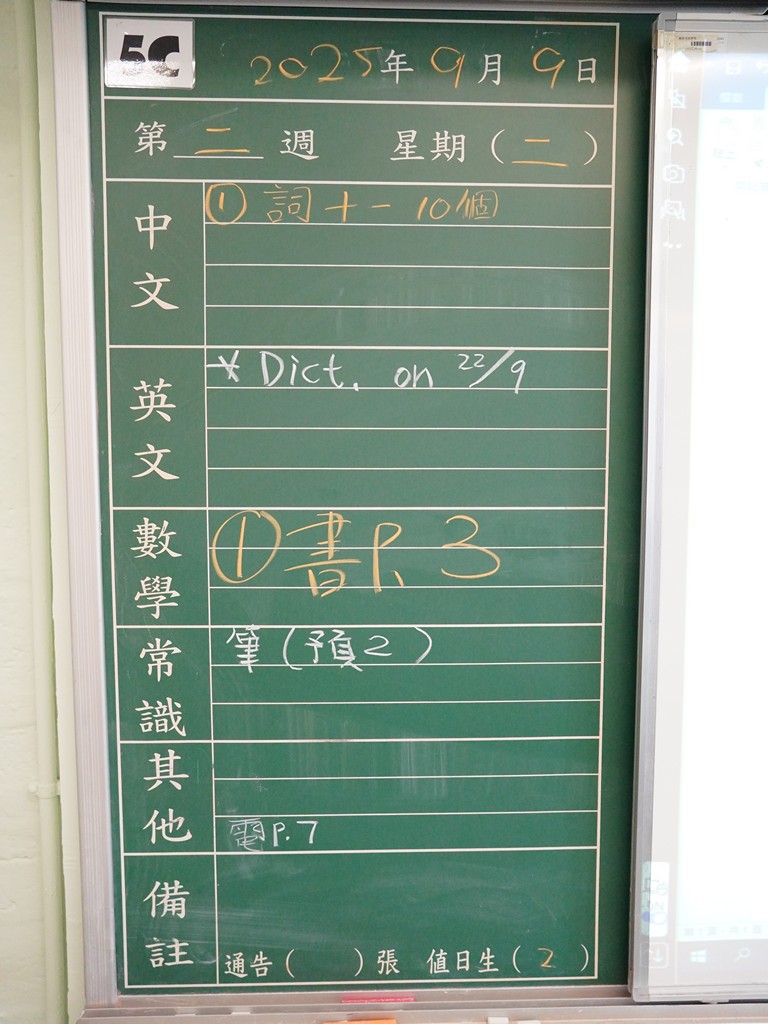 5C
2025年9月9日
第二週 星期(二)
中文
① 詞十一 10個
英文
* Dict. on 22/9
數學
① 書P. 3
常識
筆(預2)
其他
電P.7
備註
通告( )張 值日生(2)